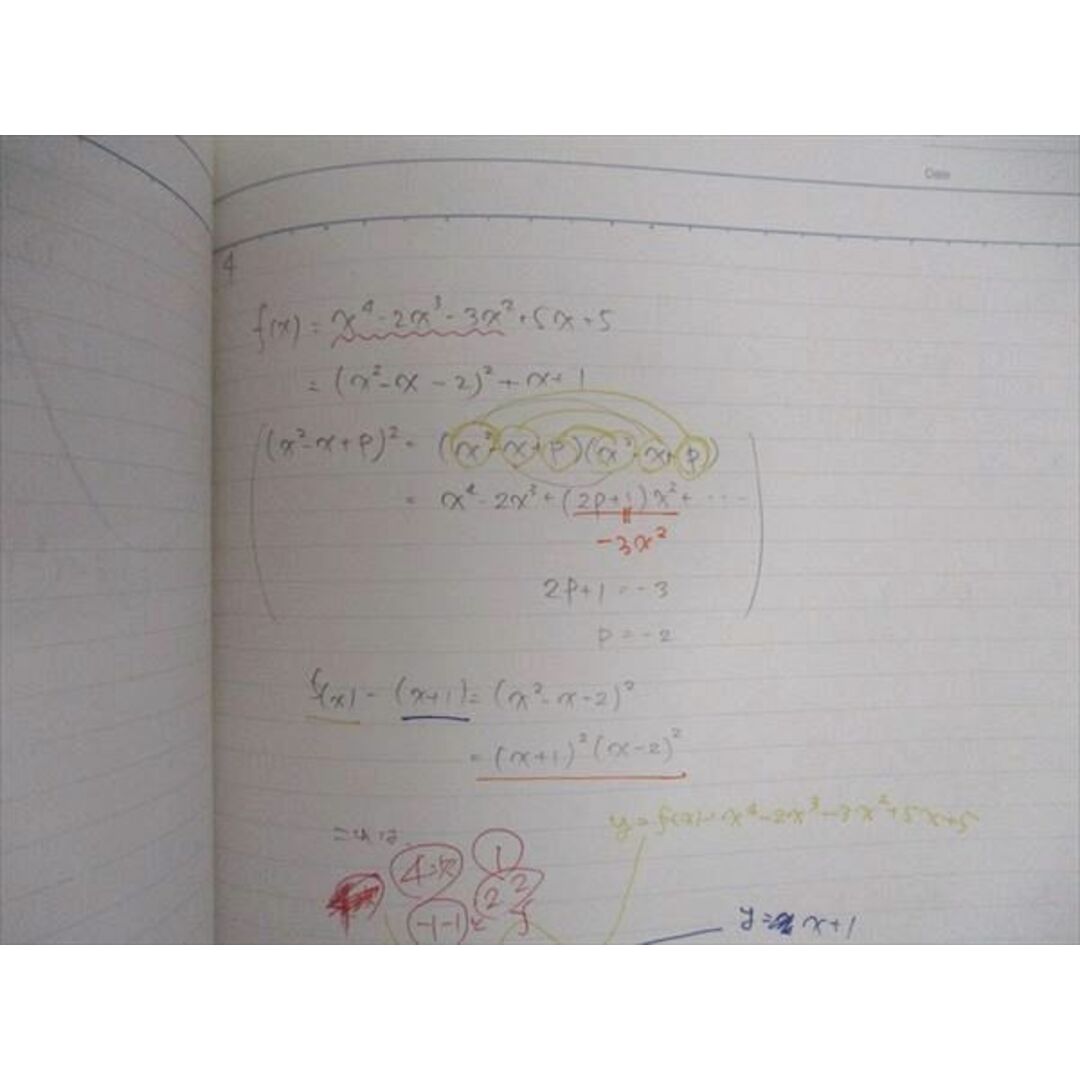 Date
4
f(x) = x⁴-2x³-3x²+5x+5
= (x²-x-2)²+x+1
(x²-x+p)² = (x²-x+p)(x²-x+p)
= x⁴-2x³+(2p+1)x²+ ...
-3x²
2p+1=-3
p=-2
f(x)-(x+1)=(x²-x-2)²
=(x+1)²(x-2)²
y=f(x)=x⁴-2x³-3x²+5x+5
これは
4次 1
-1-1と 2 2
y= x+1